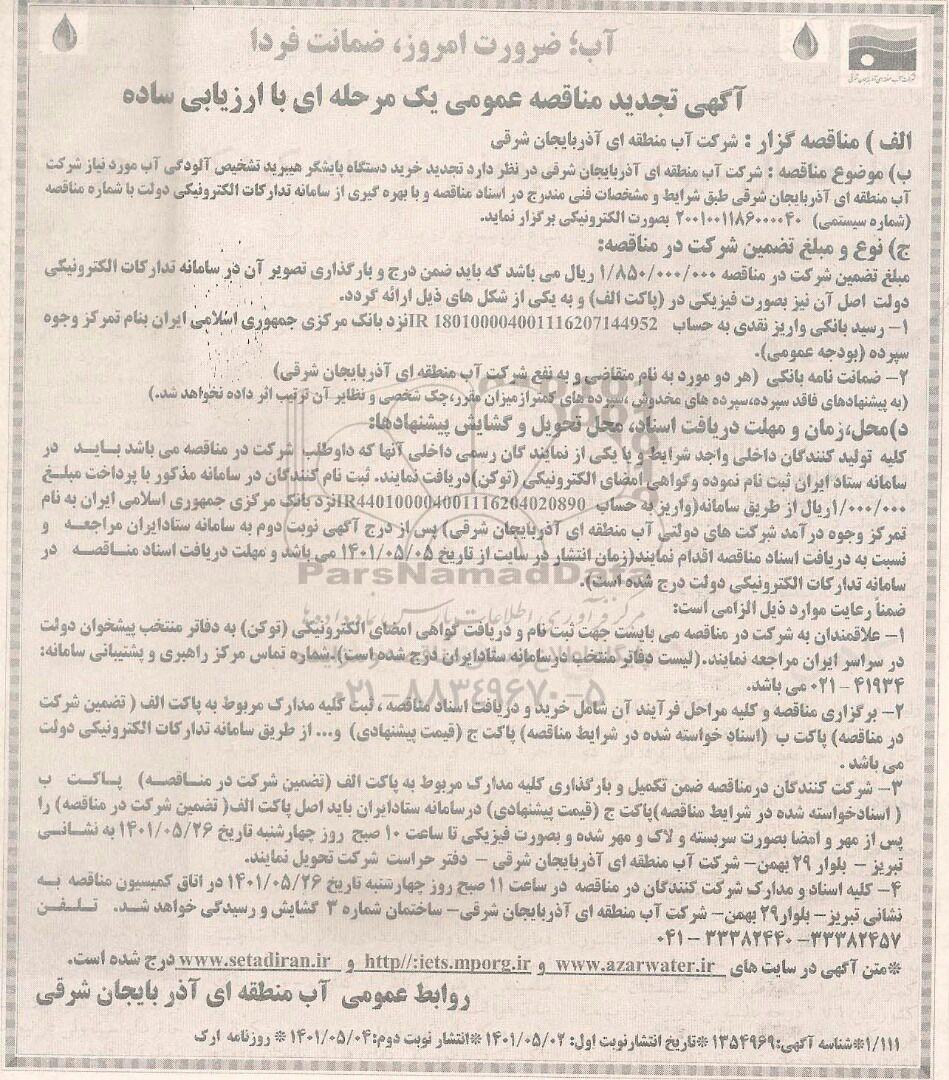 آب؛ ضرورت امروز، ضمانت فردا
آگهی تجدید مناقصه عمومی یک مرحله ای با ارزیابی ساده
الف ) مناقصه گزار : شرکت آب منطقه ای آذربایجان شرقی
ب) موضوع مناقصه : شرکت آب منطقه ای آذربایجان شرقی در نظر دارد تجدید خرید دستگاه پایشگر هیبرید تشخیص آلودگی آب مورد نیاز شرکت
آب منطقه ای آذربایجان شرقی طبق شرایط و مشخصات فنی مندرج در اسناد مناقصه و با بهره گیری از سامانه تدارکات الکترونیکی دولت با شماره مناقصه
(شماره سیستمی) ۲۰۰۱۰۰۱۱۸۶۰۰۰۰۴۰ بصورت الکترونیکی برگزار نماید.
ج) نوع و مبلغ تضمین شرکت در مناقصه:
مبلغ تضمین شرکت در مناقصه ۱/۸۵۰/۰۰۰/۰۰۰ ریال می باشد که باید ضمن درج و بارگذاری تصویر آن در سامانه تدارکات الکترونیکی
دولت اصل آن نیز بصورت فیزیکی در (پاکت الف) و به یکی از شکل های ذیل ارائه گردد.
۱– رسید بانکی واریز نقدی به حساب IR 180100004001116207144952نزد بانک مرکزی جمهوری اسلامی ایران بنام تمرکز وجوه
سپرده (بودجه عمومی).
۲– ضمانت نامه بانکی (هر دو مورد به نام متقاضی و به نفع شرکت آب منطقه ای آذربایجان شرقی)
(به پیشنهادهای فاقد سپرده،سپرده های مخدوش ،سپرده های کمتر ازمیزان مقرر،چک شخصی و نظایر آن ترتیب اثر داده نخواهد شد.)
د)محل،زمان و مهلت دریافت اسناد، محل تحویل و گشایش پیشنهادها:
کلیه تولید کنندگان داخلی واجد شرایط و یا یکی از نمایندگان رسمی داخلی آنها که داوطلب شرکت در مناقصه می باشد بایــد در
سامانه ستاد ایران ثبت نام نموده وگواهی امضای الکترونیکی (توکن)دریافت نمایند. ثبت نام کنندگان در سامانه مذکور با پرداخت مبلــغ
۱/۰۰۰/۰۰۰ریال از طریق سامانه(واریز به حساب IR440100004001116204020890نزد بانک مرکزی جمهوری اسلامی ایران به نام
تمرکز وجوه درآمد شرکت های دولتی آب منطقه ای آذربایجان شرقی) پس از درج آگهی نوبت دوم به سامانه ستادایران مراجعــه و
نسبت به دریافت اسناد مناقصه اقدام نمایند(زمان انتشار در سایت از تاریخ ۱۴۰۱/۰۵/۰۵ می باشد و مهلت دریافت اسناد مناقصــه در
سامانه تدارکات الکترونیکی دولت درج شده است).
ParsNamadData
ضمناً رعایت موارد ذیل الزامی است:
۱– علاقمندان به شرکت در مناقصه می بایست جهت ثبت نام و دریافت گواهی امضای الکترونیکی (توکن) به دفاتر منتخب پیشخوان دولت
در سراسر ایران مراجعه نمایند.(لیست دفاتر منتخب درسامانه ستادایران درج شده است).شماره تماس مرکز راهبری و پشتیبانی سامانه:
۴۱۹۳۴ – ۰۲۱ می باشد.
۰۲۱–۸۸۳۴۹۶۷۰–۵
۲– برگزاری مناقصه و کلیه مراحل فرآیند آن شامل خرید و دریافت اسناد مناقصه ، ثبت کلیه مدارک مربوط به پاکت الف ( تضمین شرکت
در مناقصه) پاکت ب (اسناد خواسته شده در شرایط مناقصه) پاکت ج (قیمت پیشنهادی) و... از طریق سامانه تدارکات الکترونیکی دولت
می باشد .
۳– شرکت کنندگان درمناقصه ضمن تکمیل و بارگذاری کلیه مدارک مربوط به پاکت الف (تضمین شرکت در منــاقصه) پــاکــت ب
( اسنادخواسته شده در شرایط مناقصه)پاکت ج (قیمت پیشنهادی) درسامانه ستادایران باید اصل پاکت الف( تضمین شرکت در مناقصه) را
پس از مهر و امضا بصورت سربسته و لاک و مهر شده و بصورت فیزیکی تا ساعت ۱۰ صبح روز چهارشنبه تاریخ ۱۴۰۱/۰۵/۲۶ به نشــانــی
تبریز – بلوار ۲۹ بهمن– شرکت آب منطقه ای آذربایجان شرقی – دفتر حراست شرکت تحویل نمایند.
۴– کلیه اسناد و مدارک شرکت کنندگان در مناقصه در ساعت ۱۱ صبح روز چهارشنبه تاریخ ۱۴۰۱/۰۵/۲۶ در اتاق کمیسیون مناقصه بــه
نشانی تبریز– بلوار۲۹ بهمن– شرکت آب منطقه ای آذربایجان شرقی– ساختمان شماره ۳ گشایش و رسیدگی خواهد شــد. تــلــفــن
۳۳۳۸۲۴۵۷– ۳۳۳۸۲۴۴۰ – ۰۴۱
*متن آگهی در سایت های www.azarwater.ir و http//:iets.mporg.ir و www.setadiran.ir درج شده است.
روابط عمومی آب منطقه ای آذر بایجان شرقی
۱/۱۱۱*شناسه آگهی:۱۳۵۴۹۶۹ *تاریخ انتشارنوبت اول: ۱۴۰۱/۰۵/۰۲ *انتشار نوبت دوم:۱۴۰۱/۰۵/۰۴ * روزنامه ارک